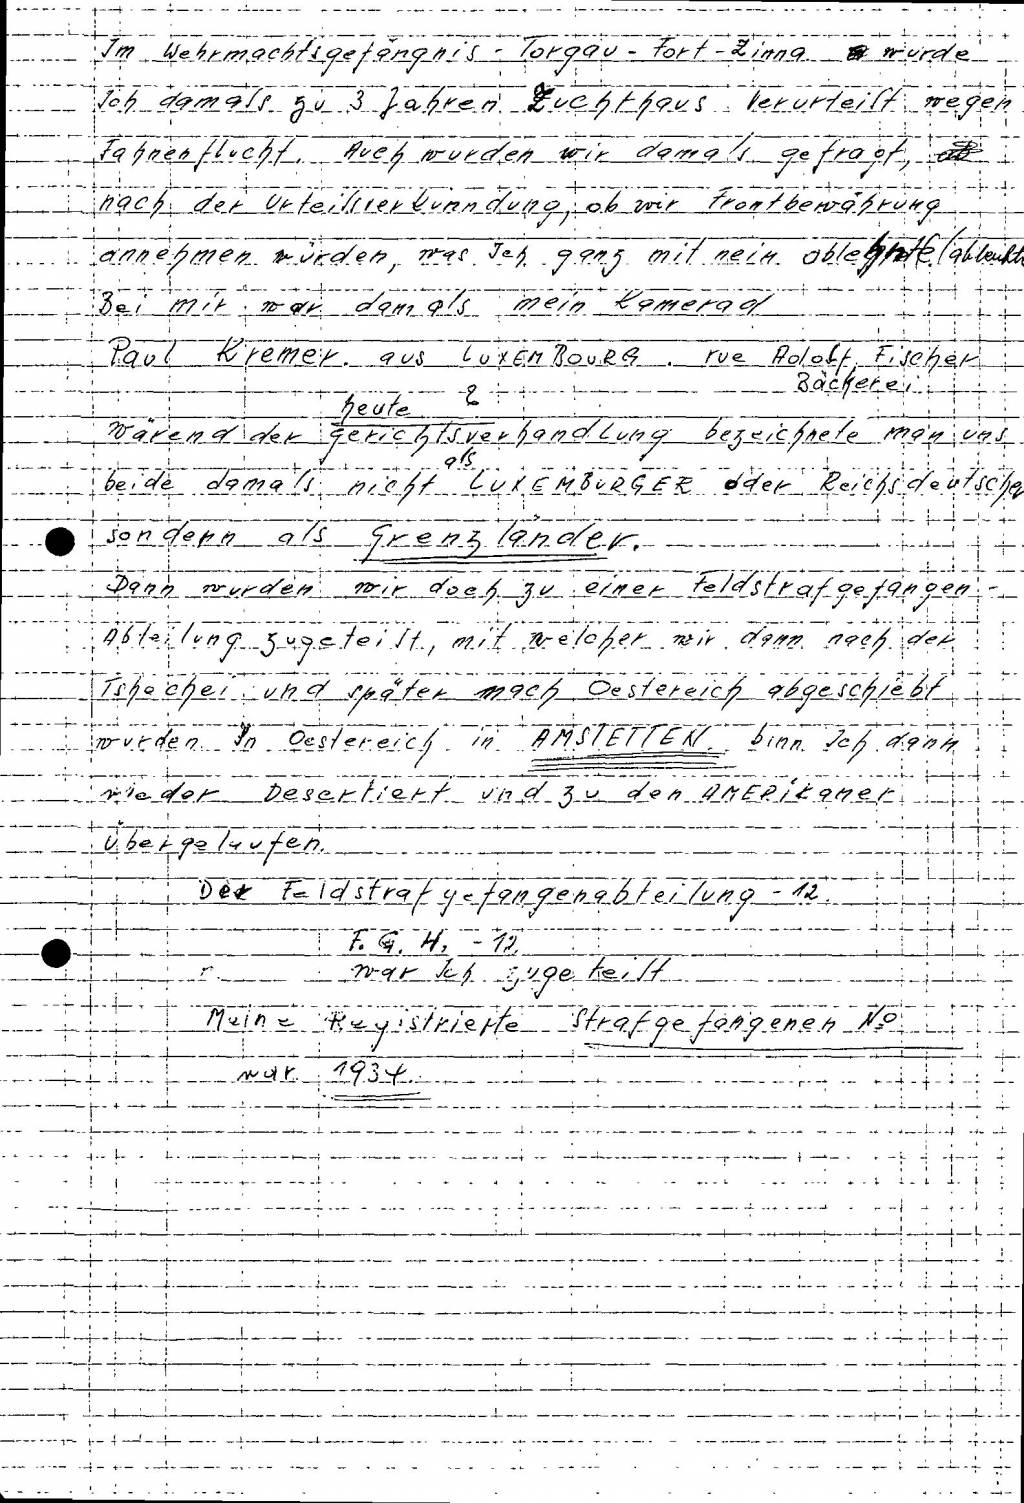 Im Wehrmachtsgefängnis - Torgau - Fort - Zinna wurde
Ich damals zu 3 Jahren Zuchthaus Verurteilt wegen
Fahnenflucht. Auch wurden wir damals gefragt,
nach der Urteilsverkunndung, ob wir Frontbewährung
annehmen würden, was Ich ganz mit nein ablehnte.
Bei mir war damals mein Kamerad
Paul Kremer. aus LUXEMBOURG. rue Adolf, Fischer
Bäckerei
heute
Wärend der gerichtsverhandlung bezeichnete man uns
als
beide damals nicht LUXEMBURGER oder Reichsdeutsche
sondern als Grenzländer.
Dann wurden wir doch zu einer Feldstrafgefangen-
Abteilung zugeteilt, mit welcher wir dann nach der
Tshechei und später nach Oestereich abgeschiebt
wurden. In Oestereich in AMSTETTEN. binn Ich dann
wieder Desertiert und zu den AMERIKANER
übergelaufen.
Der Feldstrafgefangenabteilung - 12.
F. G. A. - 12.
war Ich zugeteilt
Meine Registrierte Strafgefangenen No
war 1934.